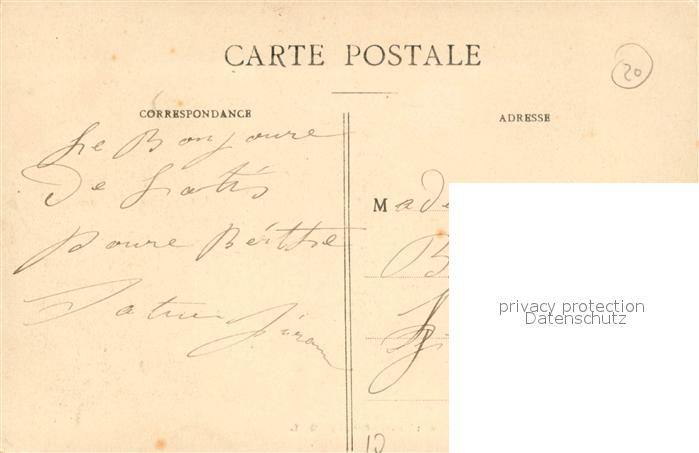 CARTE POSTALE
20
CORRESPONDANCE
ADRESSE
Le Bonjoure
De
poure Berthe
Made
B
privacy protection
Datenschutz